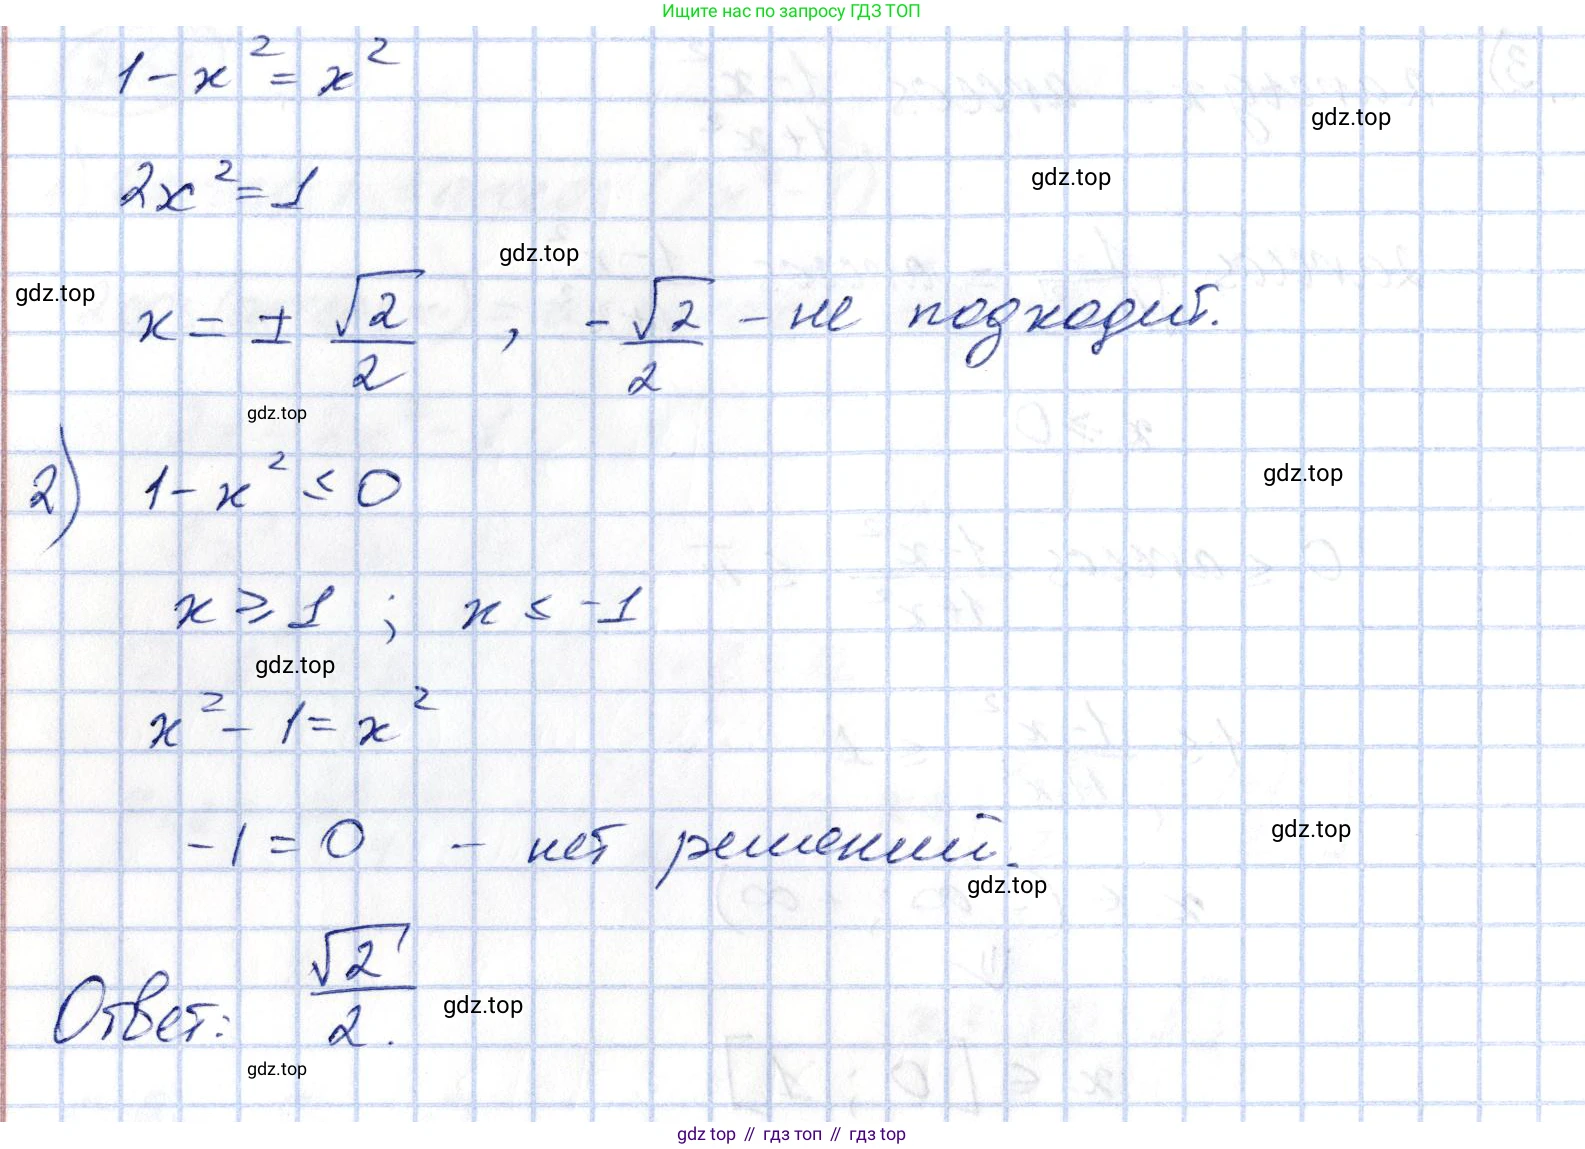 Ищите нас по запросу ГДЗ ТОП
1 - x² = x²
gdz.top
2x² = 1
gdz.top
gdz.top
gdz.top
x = ± √2/2 , - √2/2 - не подходит.
gdz.top
2) 1 - x² ≤ 0
gdz.top
x ≥ 1 ; x ≤ -1
gdz.top
x² - 1 = x²
-1 = 0 - нет решений.
gdz.top
gdz.top
Ответ: √2/2.
gdz.top
gdz.top
gdz top // гдз топ // gdz top